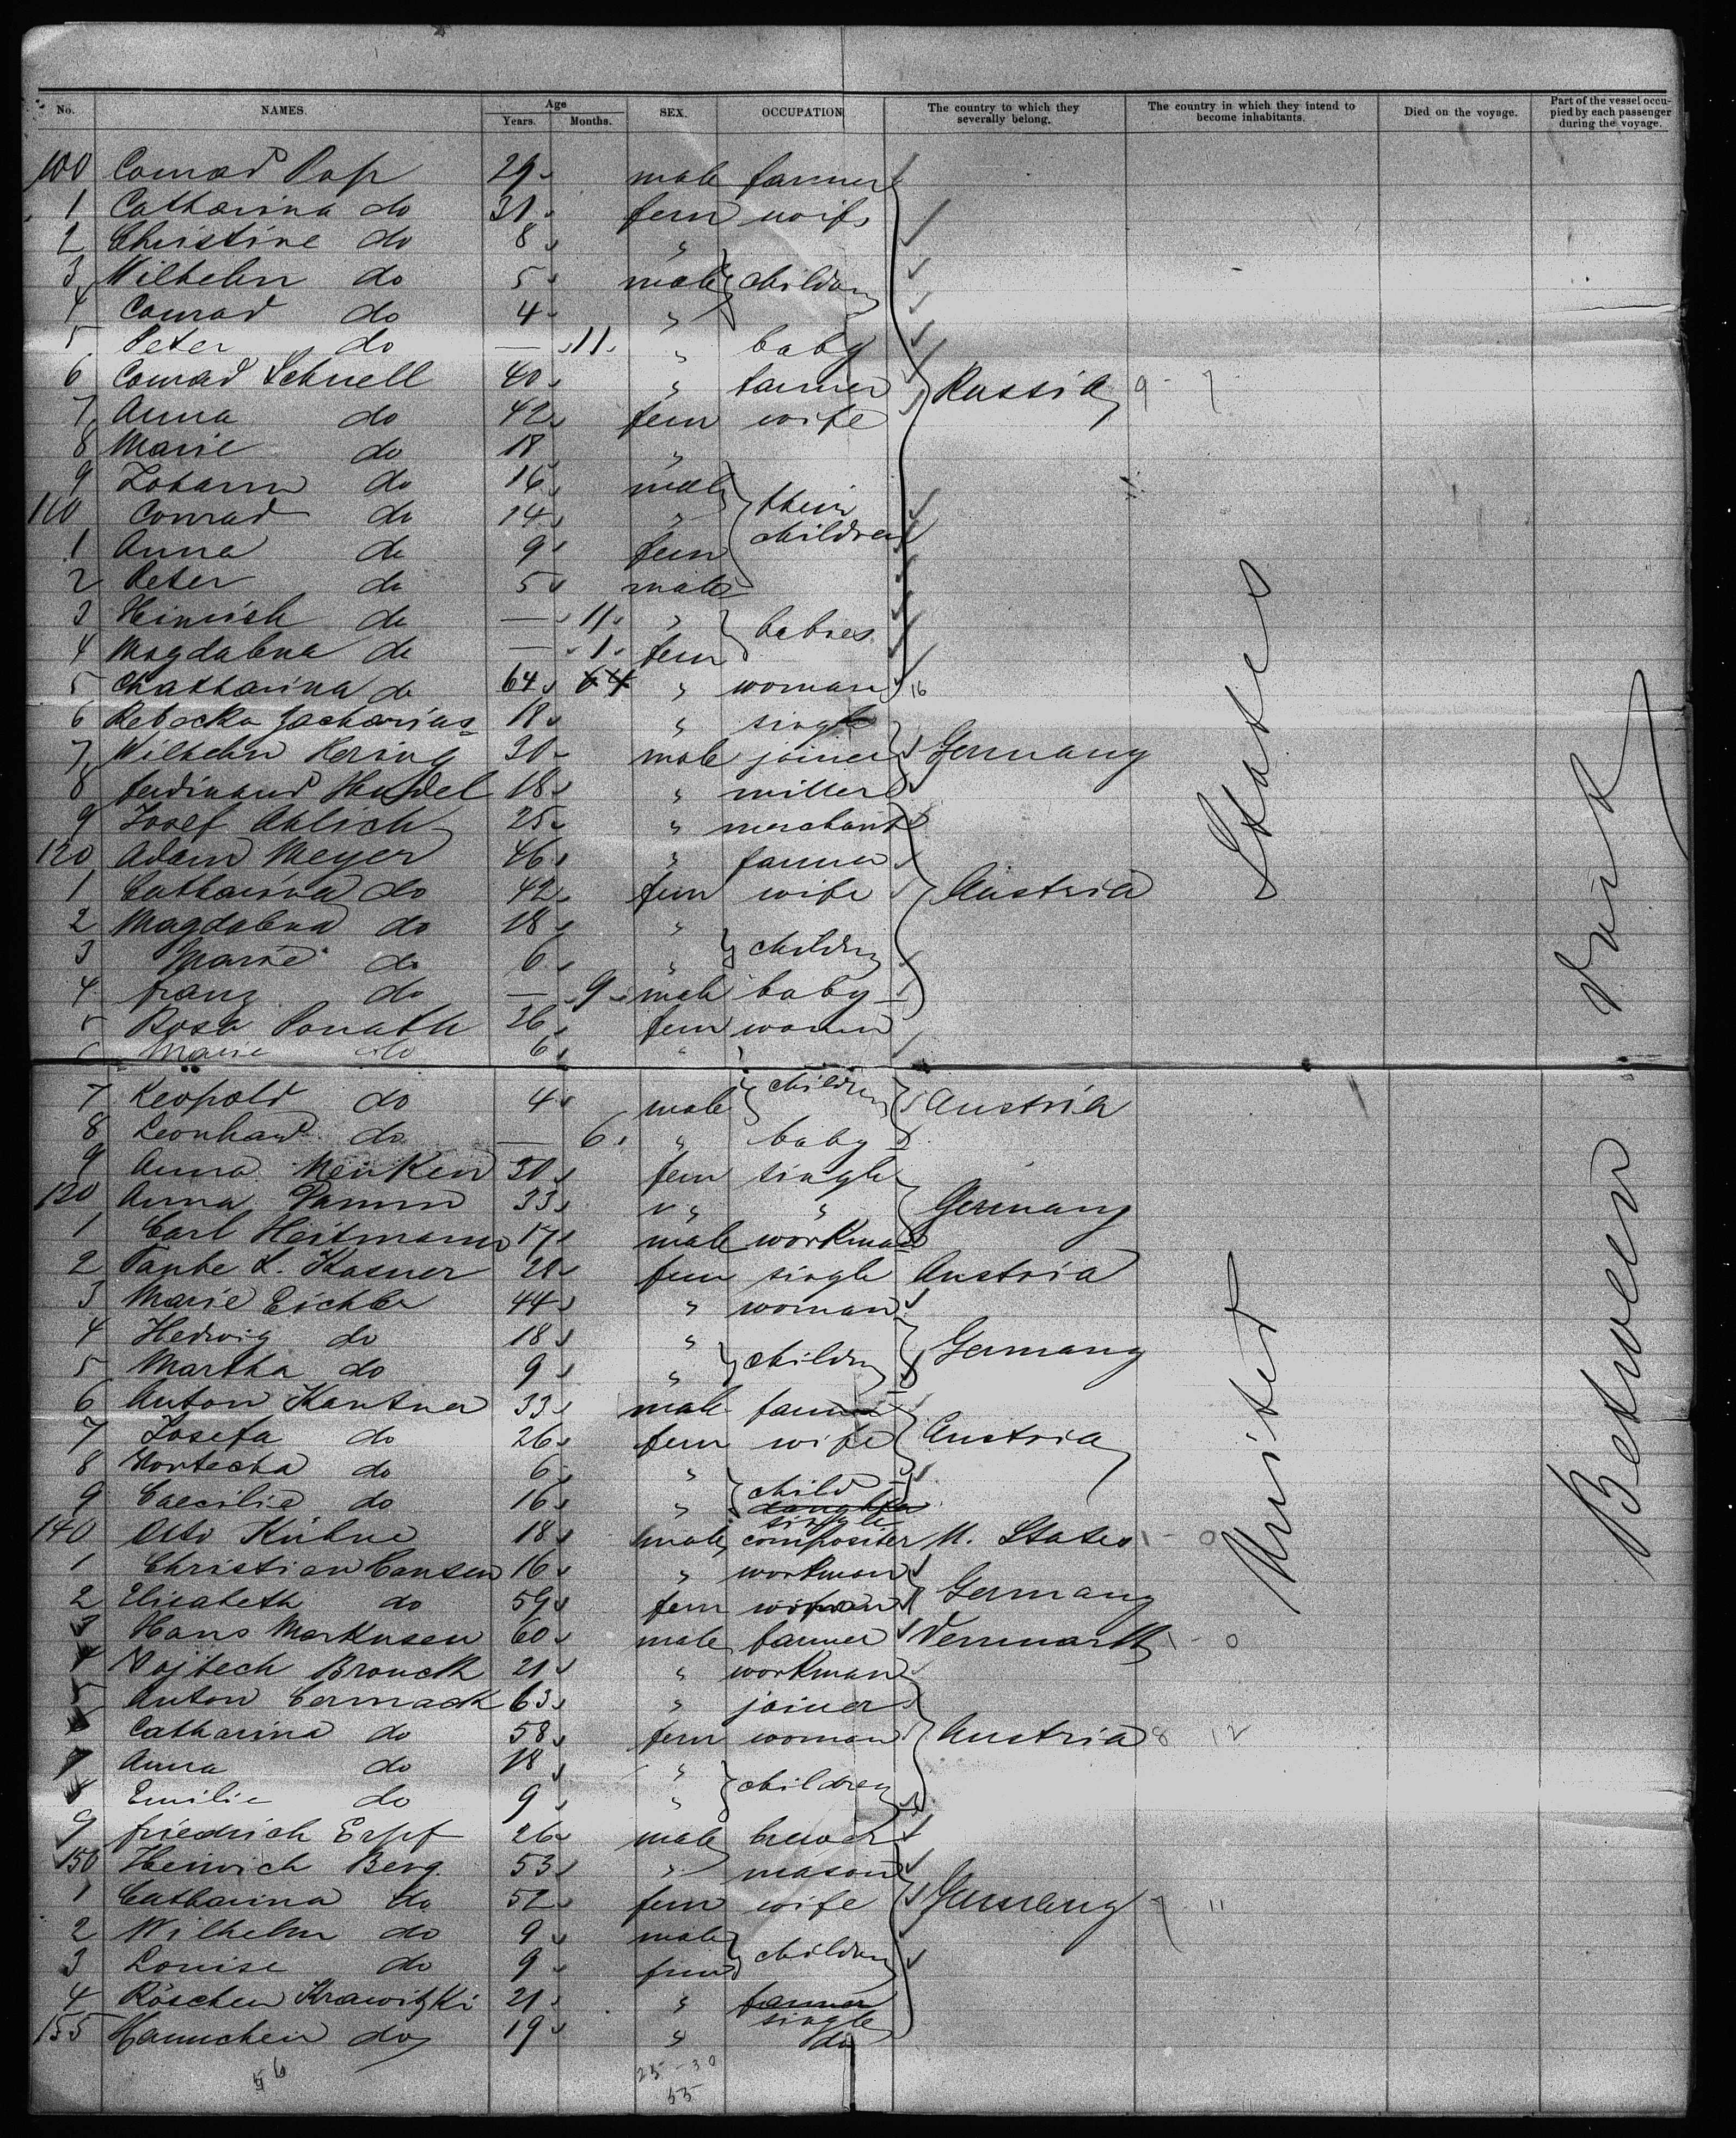 No. NAMES. Age Years. Months. SEX. OCCUPATION The country to which they severally belong. The country in which they intend to become inhabitants. Died on the voyage. Part of the vessel occupied by each passenger during the voyage.
100 Conrad Pop 29 male farmer
1 Catharina do 31 fem wife
2 Christine do 8 "
3 Wilhelm do 5 male children
4 Conrad do 4 "
5 Peter do — 11 " baby
6 Conrad Schnell 40 " farmer Russia 9 - 7
7 Anna do 42 fem wife
8 Marie do 18 "
9 Johann do 16 male their
110 Conrad do 14 " children
1 Anna do 9 fem
2 Peter do 5 male
3 Heinrich do — 11 " babies
4 Magdalena do — 1 fem
5 Chatharina do 64 64 " woman 16
6 Rebecka Zacharias 18 " single
7 Wilhelm Kering 30 male joiner Germany
8 Ferdinand Hendel 18 " miller
9 Josef Ahlich 25 " merchant
120 Adam Meyer 46 " farmer
1 Catharina do 42 fem wife Austria
2 Magdalena do 18 "
3 Marie do 6 " children
4 Franz do — 9 male baby
5 Rosa Donath 26 fem woman
6 Marie do 6 "
7 Leopold do 4 male children Austria
8 Leonhard do — 6 " baby
9 Anna Menken 30 fem single
130 Anna Damm 33 " " Germany
1 Carl Heitmann 17 male workman
2 Taube L. Kasner 20 fem single Austria
3 Marie Eichler 44 " woman
4 Hedwig do 18 " Germany
5 Martha do 9 " children
6 Anton Kantner 33 male farmer
7 Josefa do 26 fem wife Austria
8 do 6 " child
9 Caecilie do 16 " daughter single
140 Otto Kühne 18 male compositer U. States 1 - 0
1 Christian Hansen 16 " workman
2 Elisabeth do 59 fem woman Germany
3 Hans Markusen 60 male farmer Denmark 1 - 0
4 Vojtech Brouck 21 " workman
5 Anton Cermack 63 " joiner
6 Catharina do 58 fem woman Austria 8 12
7 Anna do 18 "
8 Emilie do 9 " children
9 Friedrich Erpf 26 male brewer
150 Heinrich Berg 53 " mason
1 Catharina do 52 fem wife Germany 7 - 11
2 Wilhelm do 9 male
3 Louise do 9 fem children
4 Röschen Krawitzki 21 " farmer single
155 Hannchen do 19 " do
56 25 - 30
55
United States
Between Deck